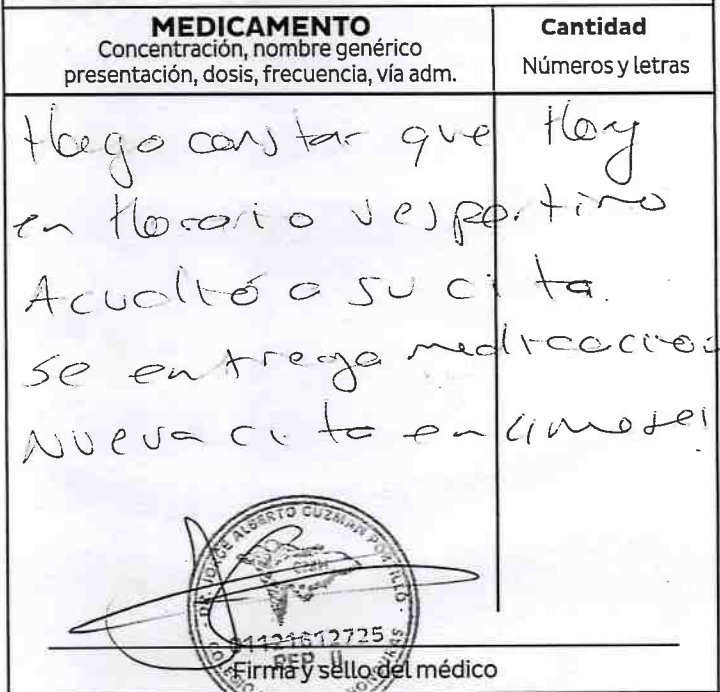 MEDICAMENTO
Concentración, nombre genérico
presentación, dosis, frecuencia, vía adm.
Cantidad
Números y letras
Hago constar que Hoy
en Horario vespertino
Acudió a su cita.
se entrega medicación
Nueva cita en 4 meses
DR. JORGE ALBERTO GUZMAN PORTILLO
01121612725
REP. H
Firma y sello del médico